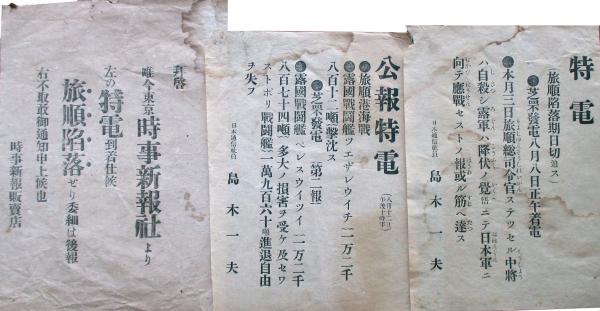 特電
(旅順陥落期日切迫ス)
芝罘發電八月八日正午着電
本月三日旅順総司令官ステッセル中將
ハ自殺シ露軍ハ降伏ノ覺悟ニテ日本軍ニ
向テ應戰セストノ報或ル筋ヘ達ス
日本通信社員
島木一夫
公報特電
(八月十二日午後十時半)
旅順港海戰
露國戰鬪艦ツエザレウイチ(一万二千
八百十二噸)擊沈ス
芝罘發電(第二報)
露國戰鬪艦ペレスウイツイ(一万二千
八百七十四噸)多大ノ損害ヲ受ケ及セワ
ストポリ戰鬪艦(一萬九百六十噸)進退自由
ヲ失フ
日本通信社員
島木一夫
拜啓
唯今東京時事新報社より
左の特電到着仕候
旅順陷落せり委細は後報
右不取敢御通知申上候也
時事新報販賣店